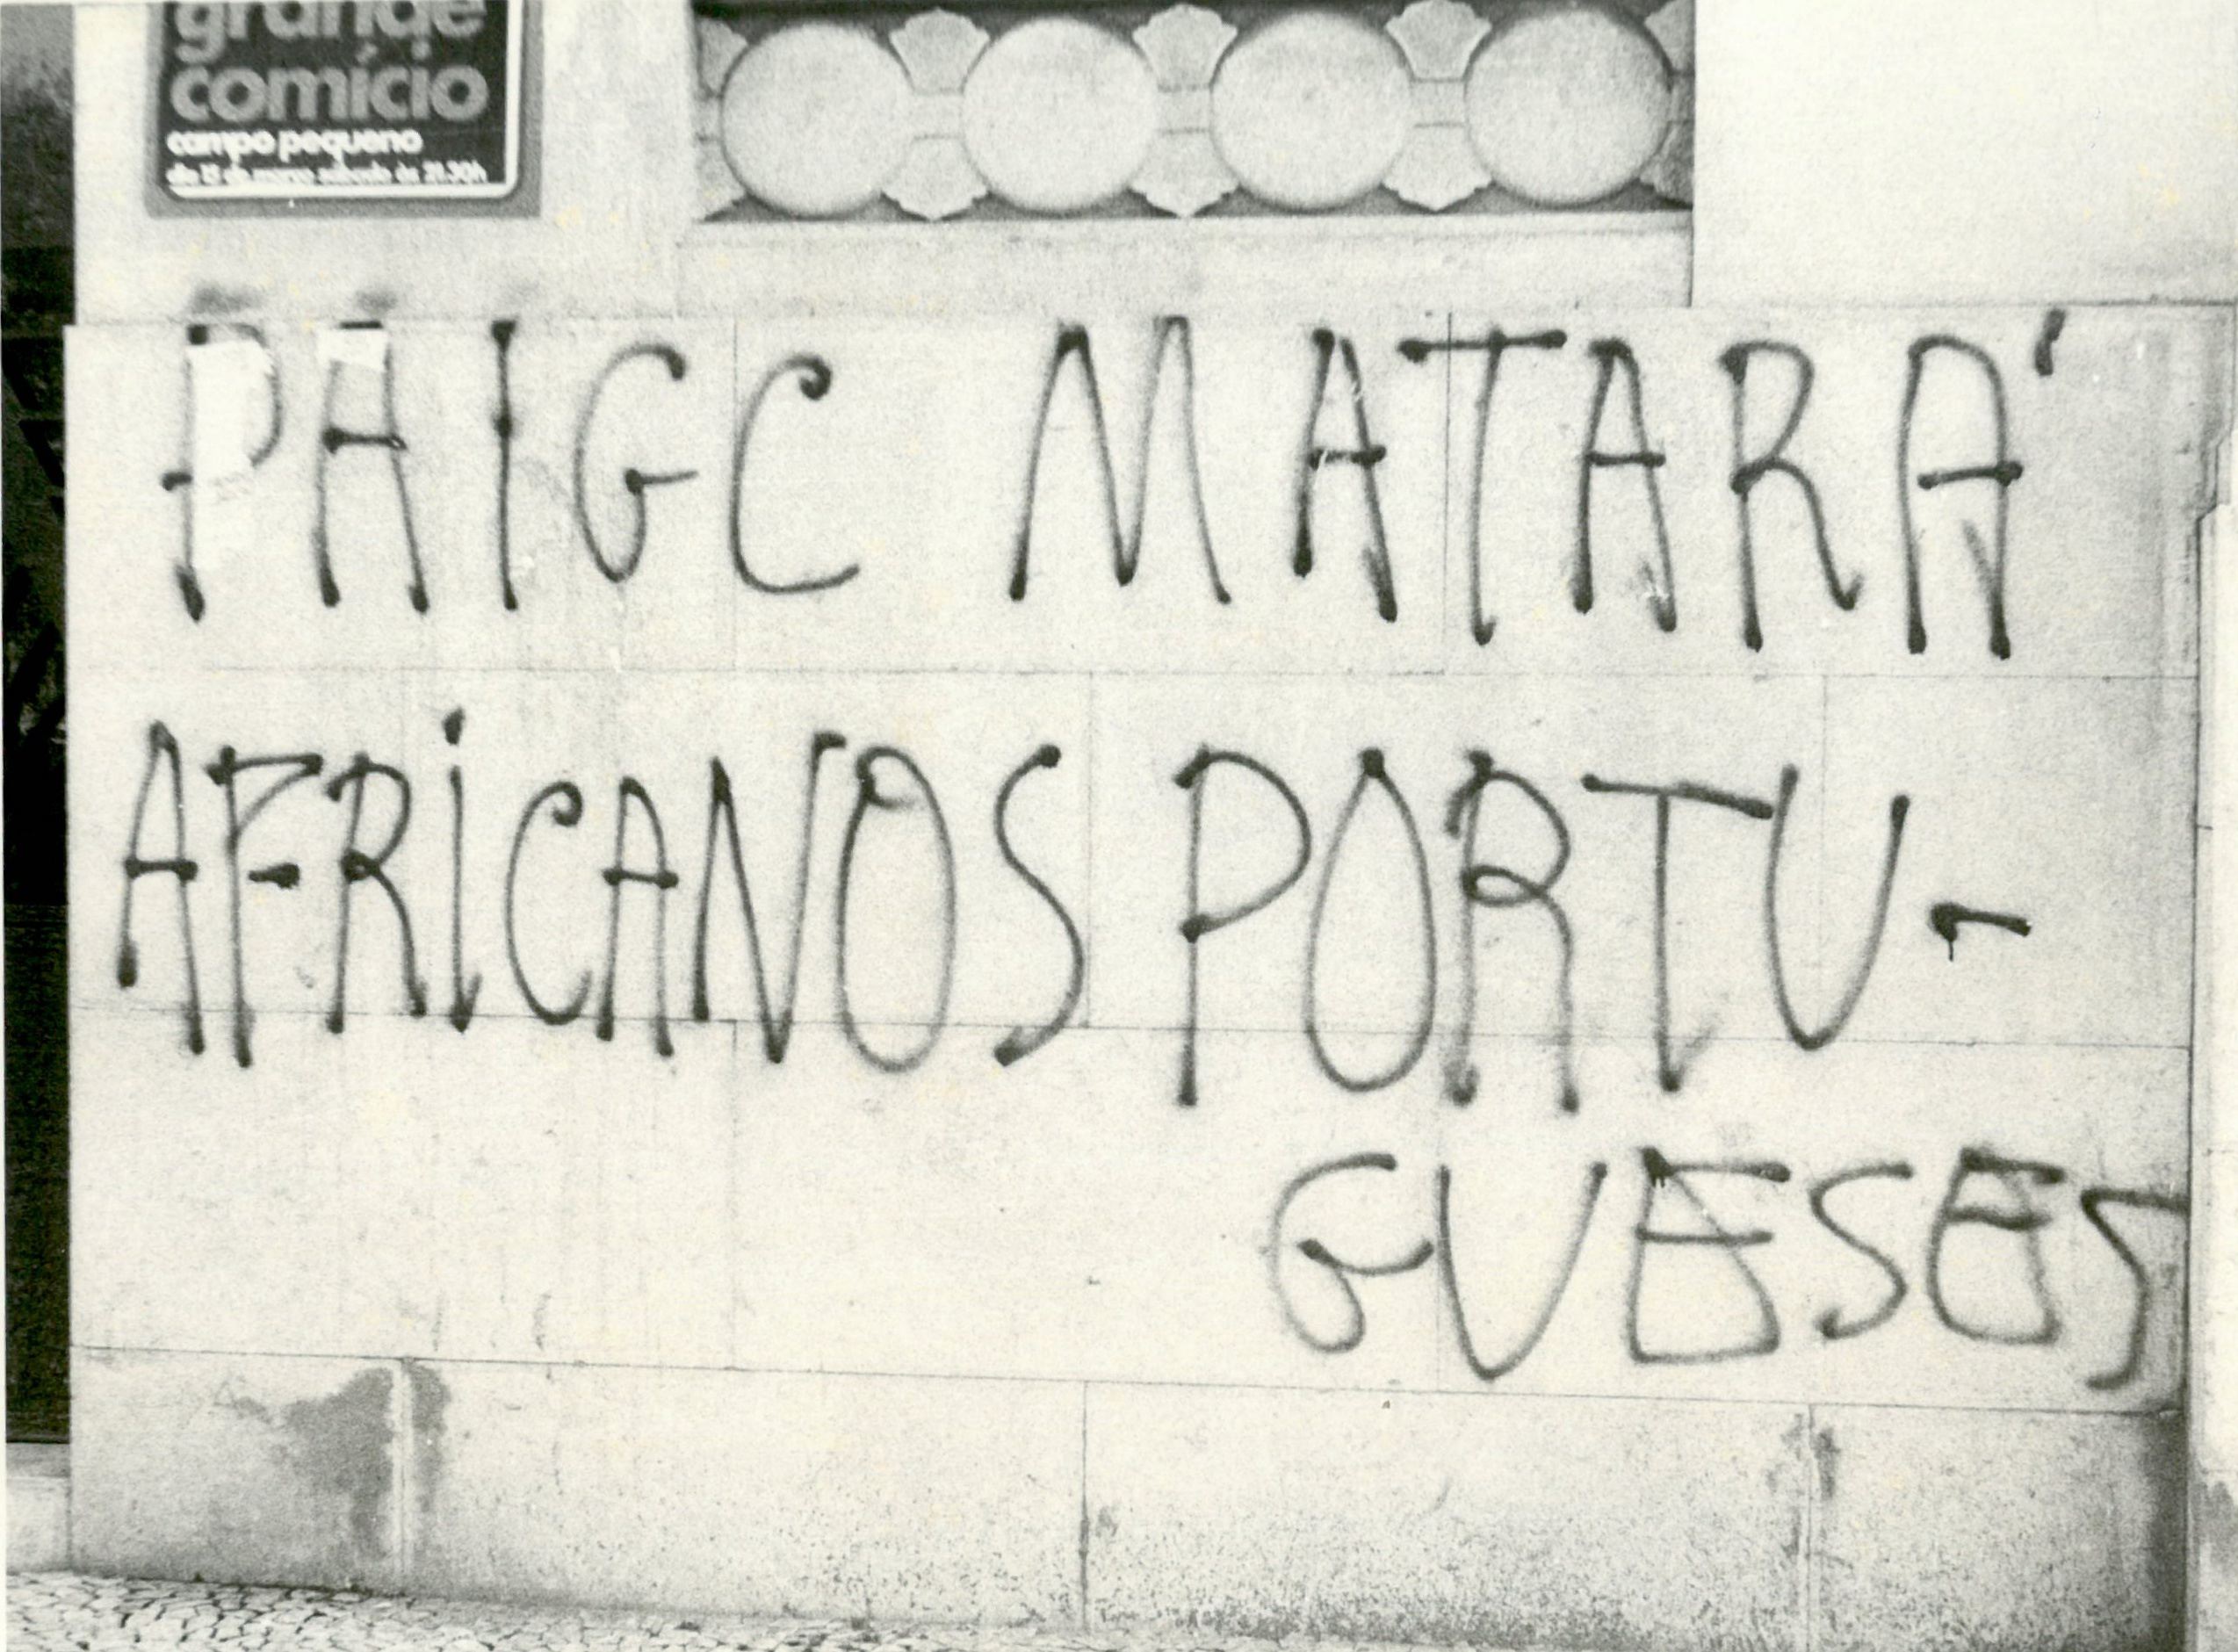 grande
comício
campo pequeno
dia 15 de março sábado às 21.30h
PAIGC MATARA'
AFRiCANOS PORTU-
GUESES